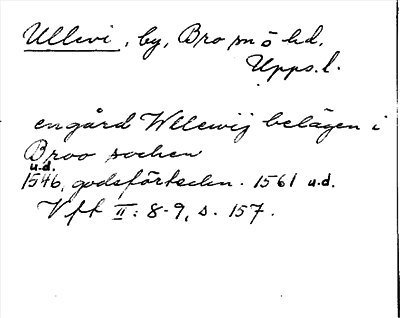 Ullevi, by, Bro sn ö hd.
Upps. l.
en gård Wllewij belägen i
Broo sochen
u.d.
1546, godsförteckn. 1561 u.d.
Vft II: 8-9, s. 157.